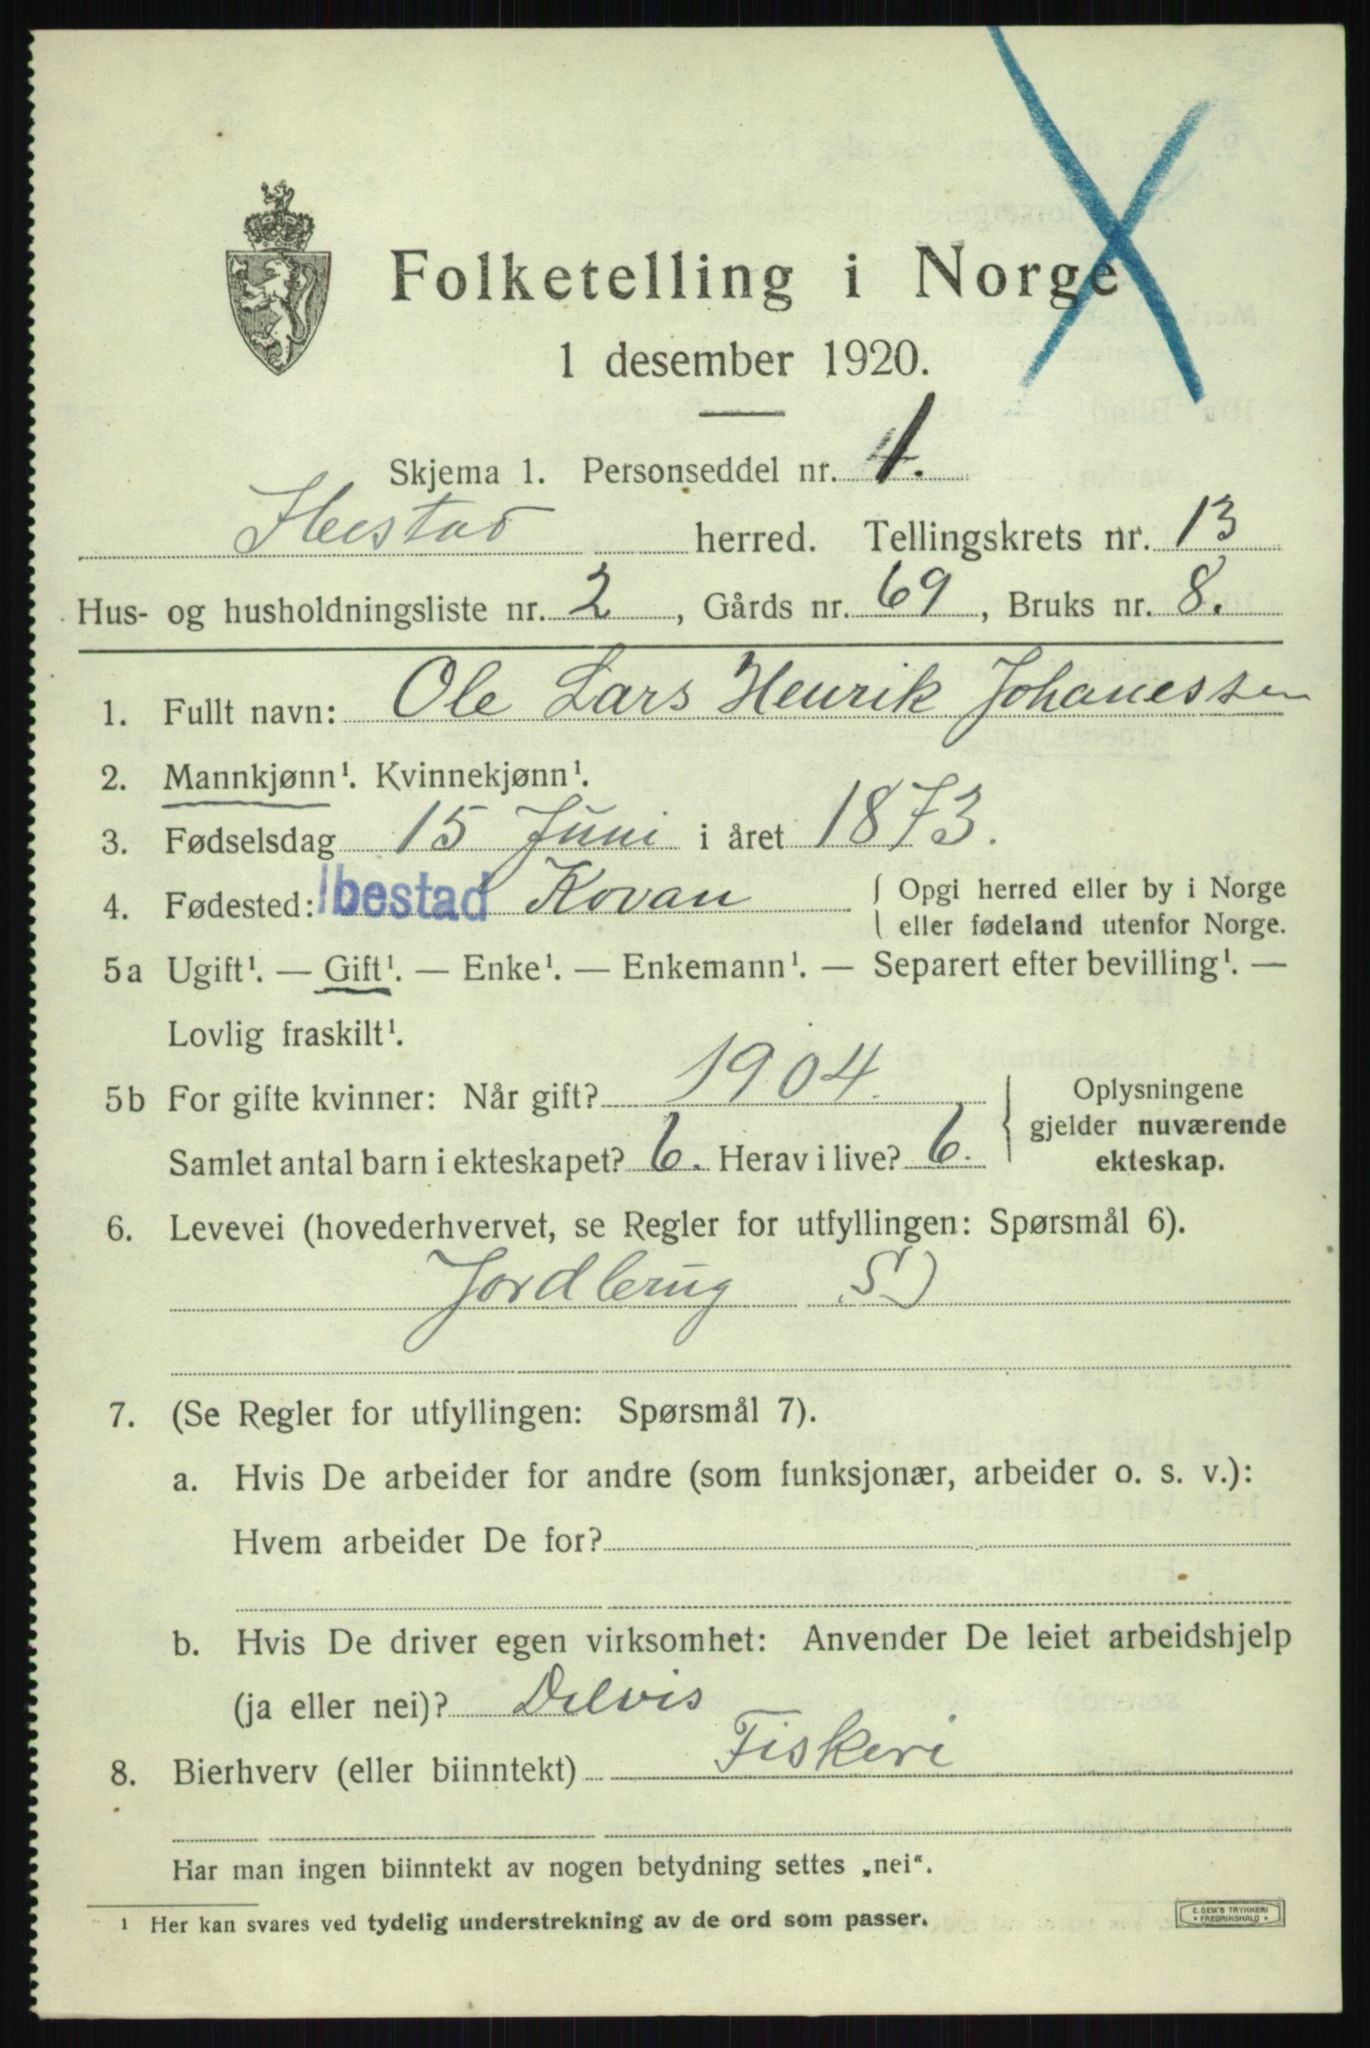 Folketelling i Norge
1 desember 1920.
Skjema 1. Personseddel nr. 1.
Ibestad herred. Tellingskrets nr. 13
Hus- og husholdningsliste nr. 2, Gårds nr. 69, Bruks nr. 8.
1. Fullt navn: Ole Lars Henrik Johanessen
2. Mannkjønn¹. Kvinnekjønn¹.
3. Fødselsdag 15 Juni i året 1873.
4. Fødested: Ibestad Kovan { Opgi herred eller by i Norge
eller fødeland utenfor Norge.
5a Ugift¹. — Gift¹. — Enke¹. — Enkemann¹. — Separert efter bevilling¹. —
Lovlig fraskilt¹.
5b For gifte kvinner: Når gift? 1904. } Oplysningene
gjelder nuværende
Samlet antal barn i ekteskapet? 6. Herav i live? 6. ekteskap.
6. Levevei (hovederhvervet, se Regler for utfyllingen: Spørsmål 6).
Jordbrug S)
7. (Se Regler for utfyllingen: Spørsmål 7).
a. Hvis De arbeider for andre (som funksjonær, arbeider o. s. v.):
Hvem arbeider De for?
b. Hvis De driver egen virksomhet: Anvender De leiet arbeidshjelp
(ja eller nei)? Delvis
8. Bierhverv (eller biinntekt) Fiskeri
Har man ingen biinntekt av nogen betydning settes „nei“.
¹ Her kan svares ved tydelig understrekning av de ord som passer.
E. SEM'S TRYKKERI
FREDRIKSHALD